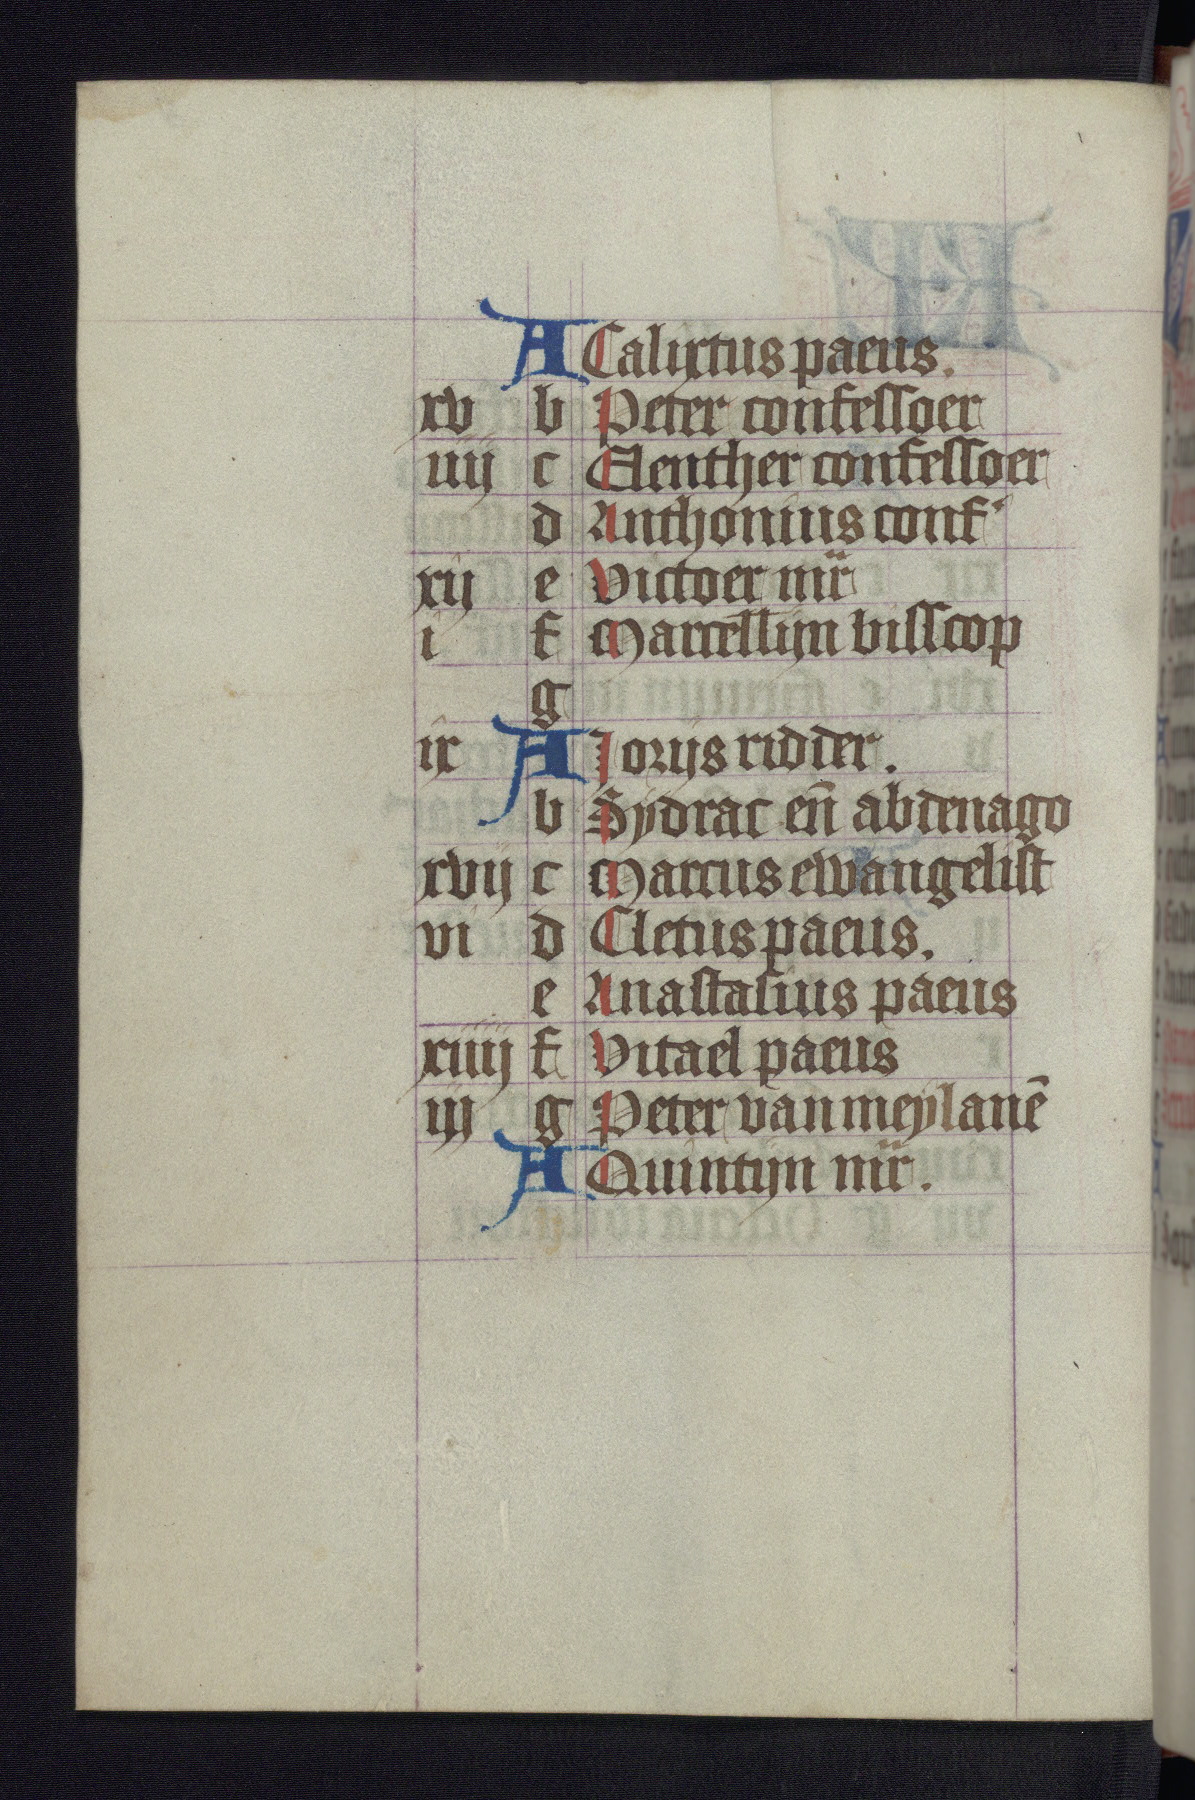 A Calixtus paeus.
xv b Peter confessoer
iiij c Eleuther confessoer
d Anthonius conf'
xij e Victoer mr̄
i f Marcellijn bisscop
g
ix A Jorijs ridder.
b Sydrac en̄ abdenago
xvij c Marcus ewangelist
vi d Cletus paeus.
e Anastasius paeus
xiiij f Vitael paeus
iij g Peter van meylanē
A Quintijn mr̄.